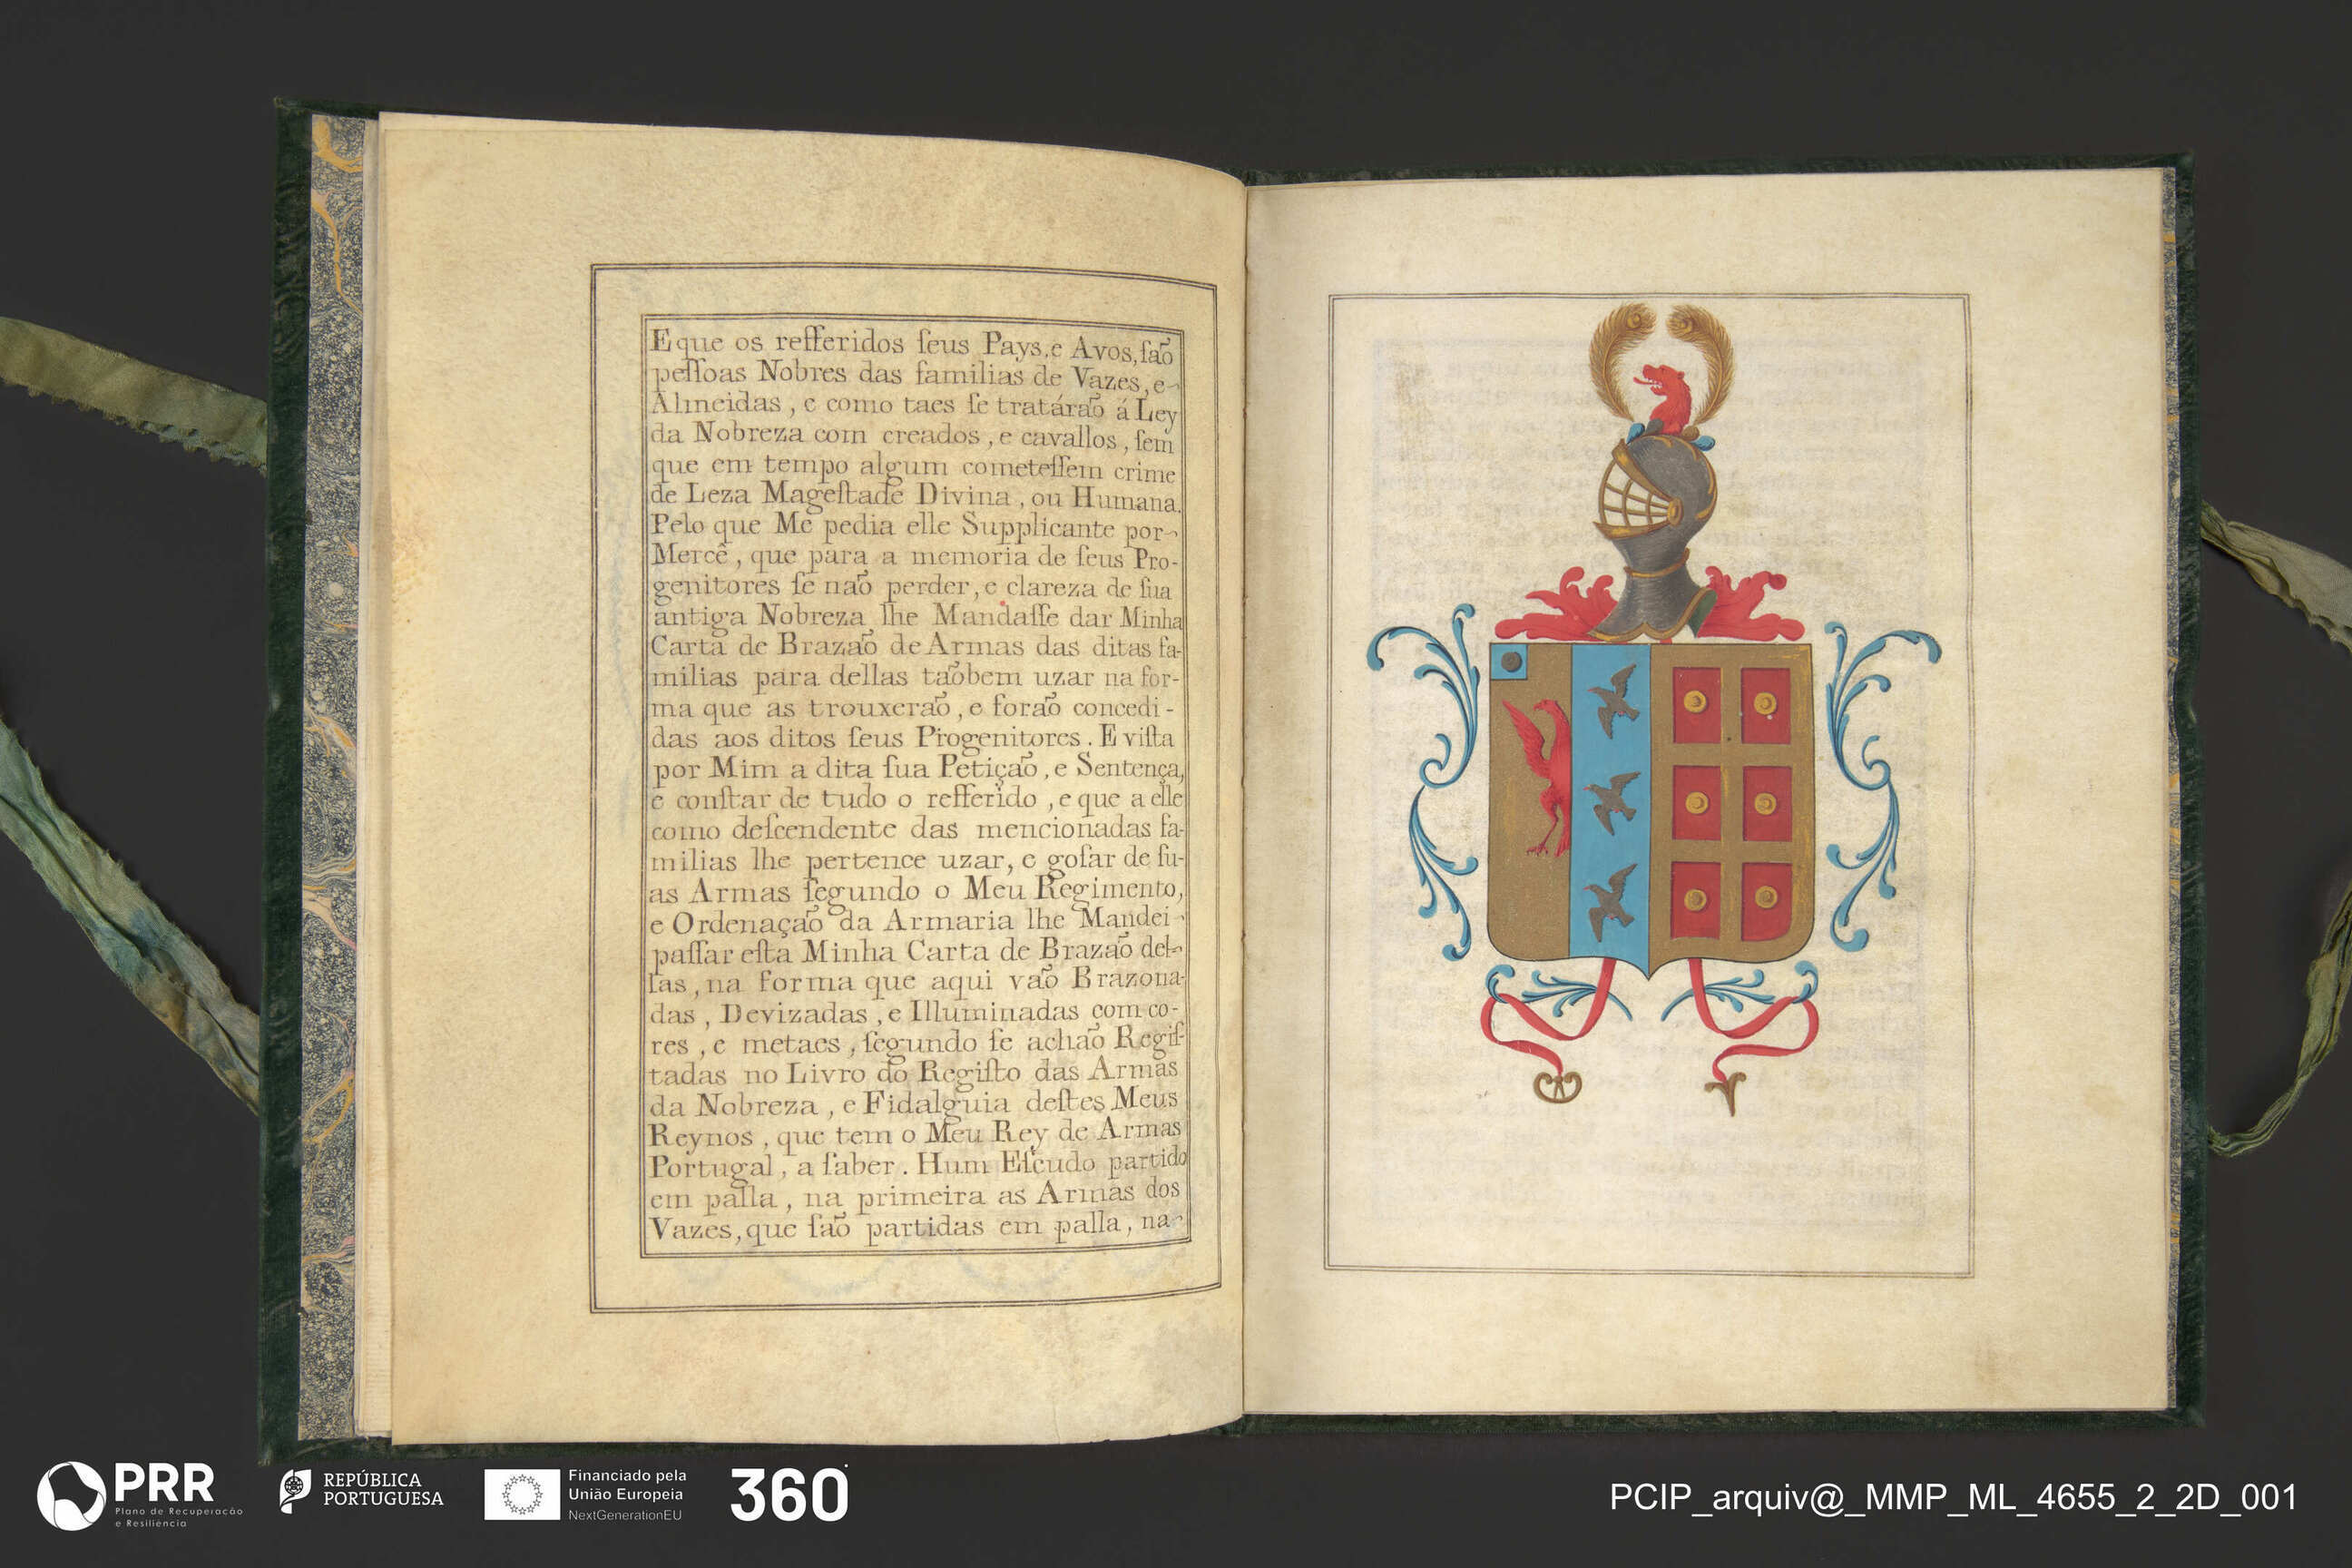 E que os refferidos ſeus Pays, e Avos, ſaõ
peſſoas Nobres das familias de Vazes, e
Almeidas, e como taes ſe tratáraõ á Ley
da Nobreza com creados, e cavallos, ſem
que em tempo algum cometeſſem crime
de Leza Mageſtade Divina, ou Humana.
Pelo que Me pedia elle Supplicante por
Mercê, que para a memoria de ſeus Pro-
genitores ſe naõ perder, e clareza de ſua
antiga Nobreza lhe Mandaſſe dar Minha
Carta de Brazaõ de Armas das ditas fa-
milias para dellas taõbem uzar na for-
ma que as trouxeraõ, e foraõ concedi-
das aos ditos ſeus Progenitores. E viſta
por Mim a dita ſua Petiçaõ, e Sentença,
e conſtar de tudo o refferido, e que a elle
como deſcendente das mencionadas fa-
milias lhe pertence uzar, e goſar de ſu-
as Armas ſegundo o Meu Regimento,
e Ordenaçaõ da Armaria lhe Mandei
paſſar eſta Minha Carta de Brazaõ del-
las, na forma que aqui vaõ Brazona-
das, Devizadas, e Illuminadas com co-
res, e metaes, ſegundo ſe achaõ Regiſ-
tadas no Livro do Regiſto das Armas
da Nobreza, e Fidalguia deſtes Meus
Reynos, que tem o Meu Rey de Armas
Portugal, a ſaber. Hum Eſcudo partido
em palla, na primeira as Armas dos
Vazes, que ſaõ partidas em palla, na
PRR
Plano de Recuperação
e Resiliência
REPÚBLICA
PORTUGUESA
Financiado pela
União Europeia
NextGenerationEU
360
PCIP_arquiv@_MMP_ML_4655_2_2D_001